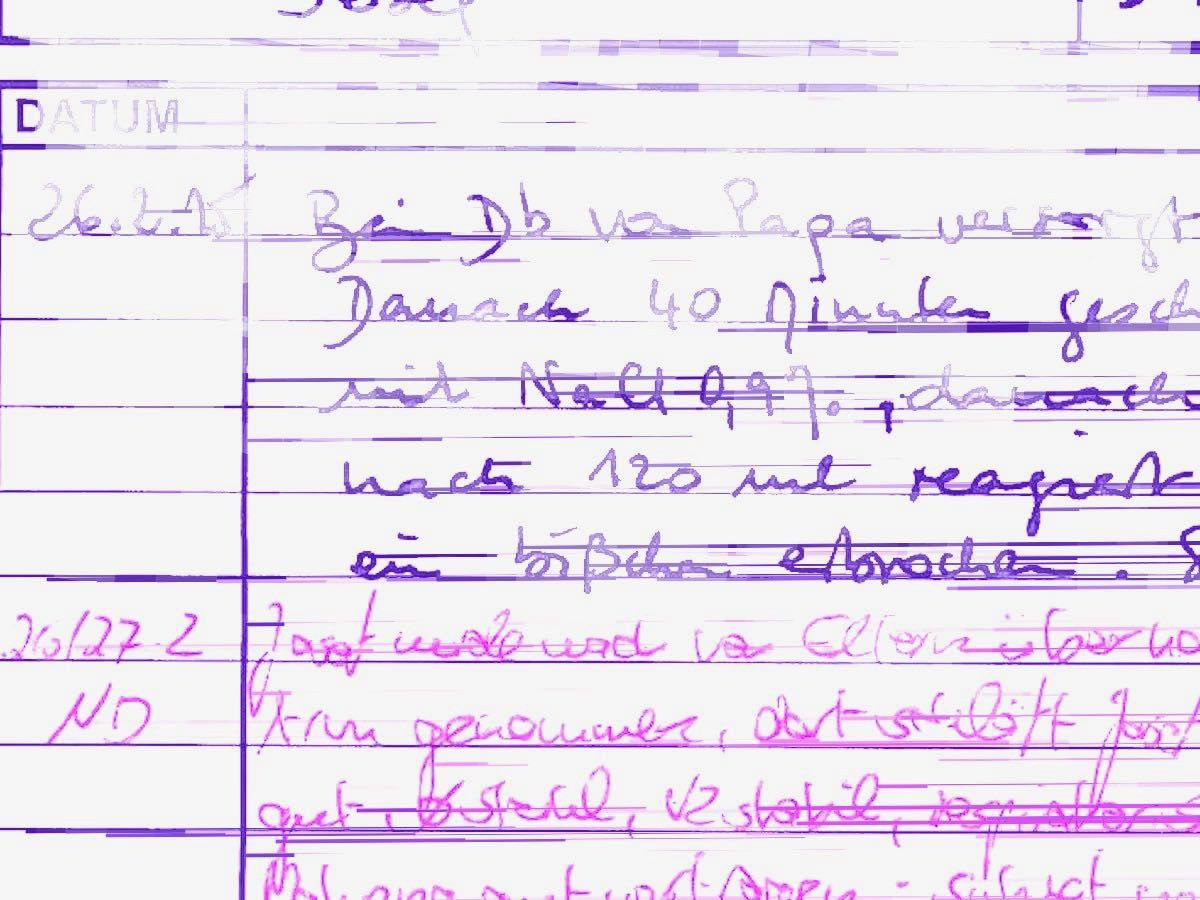 Josef
DATUM
26.2.15 Beim Db von Papa versorgt
Danach 40 Minuten gesch
mit NaCl 0,9%, danach
nach 120 ml reagiert
ein bißchen erbrochen.
26/27.2 Josef wurde von Eltern über
ND Arm genommen, dort schläft Josef
gut, VZ stabil,